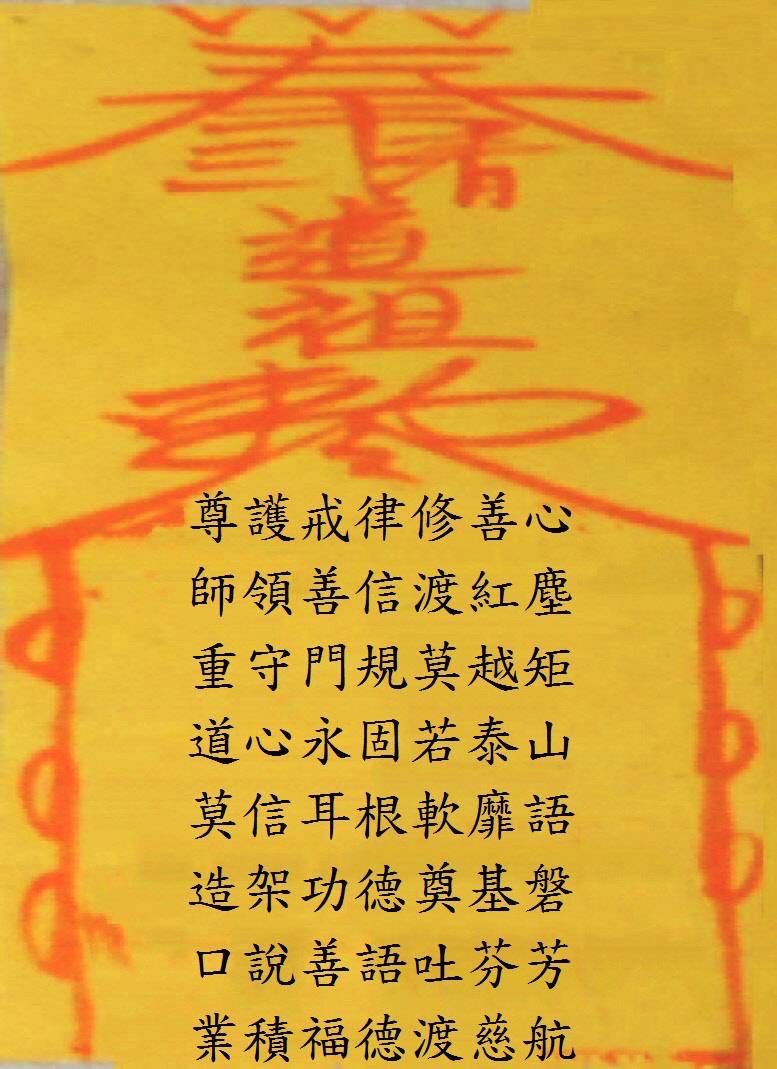 道
祖
尊護戒律修善心
師領善信渡紅塵
重守門規莫越矩
道心永固若泰山
莫信耳根軟靡語
造架功德奠基磐
口說善語吐芬芳
業積福德渡慈航